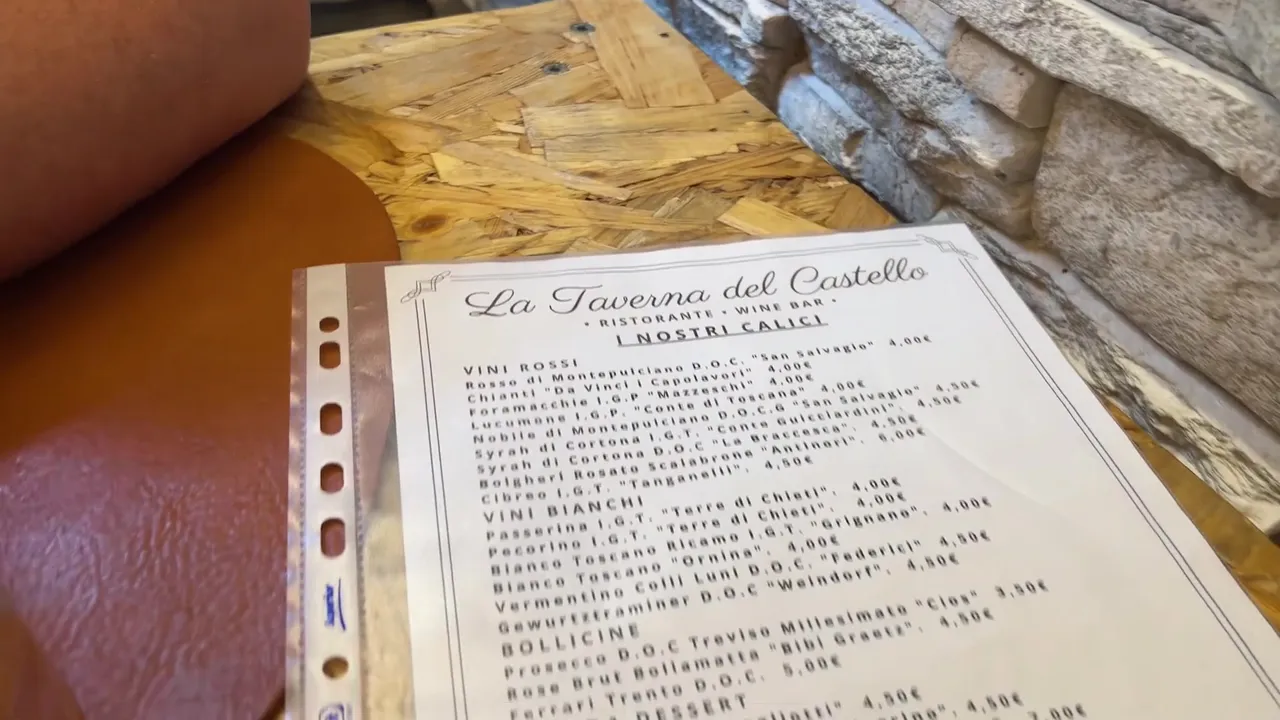 La Taverna del Castello
• RISTORANTE • WINE BAR •
I NOSTRI CALICI
VINI ROSSI
Rosso di Montepulciano D.O.C. "San Salvagio" 4,00€
Chianti "Da Vinci i Capolavori" 4,00€
Foramacchie I.G.P "Mazzeschi" 4,00€
Lucumone I.G.P. "Conte di Toscana" 4,00€
Nobile di Montepulciano D.O.C.G "San Salvagio" 4,50€
Syrah di Cortona I.G.T. "Conte Guicciardini". 4,50€
Syrah di Cortona D.O.C "La Braccesca". 4,50€
Bolgheri Rosato Scalabrone "Antinori". 6,00€
Cibreo I.G.T. "Tanganelli". 4,50€
VINI BIANCHI
Passerina I.G.T. "Terre di Chieti". 4,00€
Pecorino I.G.T. "Terre di Chieti". 4,00€
Bianco Toscano Ricamo I.G.T. "Grignano". 4,00€
Bianco Toscano "Ornina". 4,00€
Vermentino Colli Luni D.O.C. "Federici" 4,50€
Gewurtztraminer D.O.C "Weindorf". 4,50€
BOLLICINE
Prosecco D.O.C Treviso Millesimato "Clos" 3,50€
Rose Brut Bollamatta "Bibi Graetz". 4,50€
Ferrari Trento D.O.C. 5,00€
DESSERT
4,50€
4,50€
7,00€